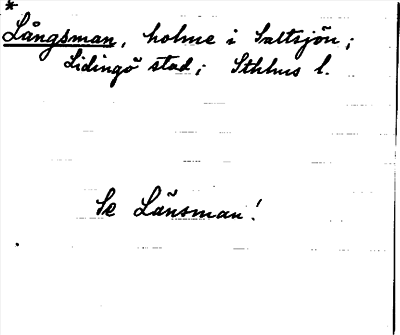 *
Långsman, holme i Saltsjön;
Lidingö stad; Sthlms l.
Se Länsman!